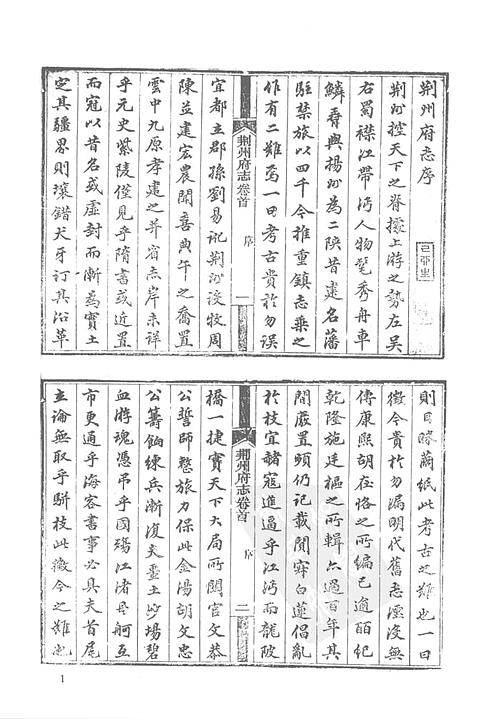 荆州府志序
荆州控天下之脊據上游之勢左吳
右蜀襟江帶沔人物髦秀舟車
鱗尋與揚州為二陝昔建名藩
駐禁旅以四千今推重鎮志乘之
作有二難焉一曰考古貴於勿誤
荆州府志卷首
序
一
宜都立郡孫劉易記荆州設牧周
陳並建宏農聞喜典午之喬置
雲中九原孝建之并省志岸未詳
乎元史紫陵僅見乎隋書或近置
而寇以昔名或虛封而漸為實土
定其疆界則壤錯犬牙訂其沿革
則目眯蘭紙此考古之難也一曰
徵今貴於勿漏明代舊志湮沒無
傳康熙胡在恪之所編已逾百紀
乾隆施廷樞之所輯亦過百年其
間廢置頭仍記載闃寂白蓮倡亂
於枝宜赭寇進逼乎江沔而龍陂
荆州府志卷首
序
二
橋一捷實天下大局所關官文恭
公誓師整旅力保此金湯胡文忠
公籌餉練兵漸復夫疆土沙場碧
血游魂憑弔乎國殤江渚
舸互
市更通乎海客書事必具夫首尾
立論無取乎駢枝此徵今之難也
1